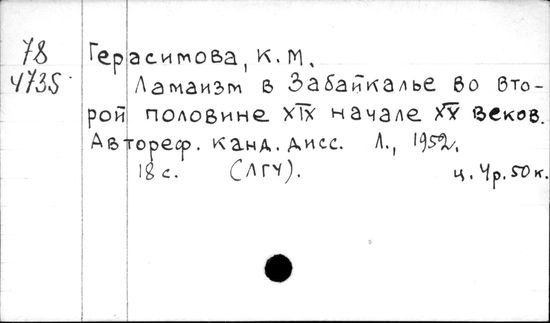 78
4735
Герасимова, К. М.
Ламаизм в Забайкалье во вто-
рой половине XIX начале XX веков.
Автореф. канд. дисс. Л., 1952.
18 с. (ЛГУ). ц. 4р. 50 к.